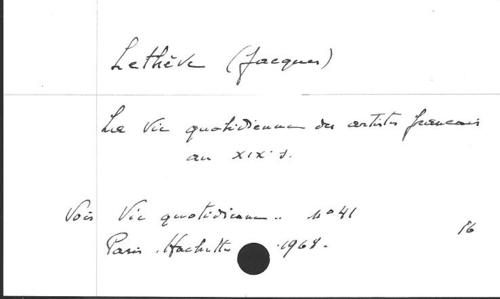 Lethève (Jacques)
La Vie quotidienne des artistes français
au XIXe s.
Voir Vie quotidienne.. n° 41
16
Paris. Hachette. 1968.